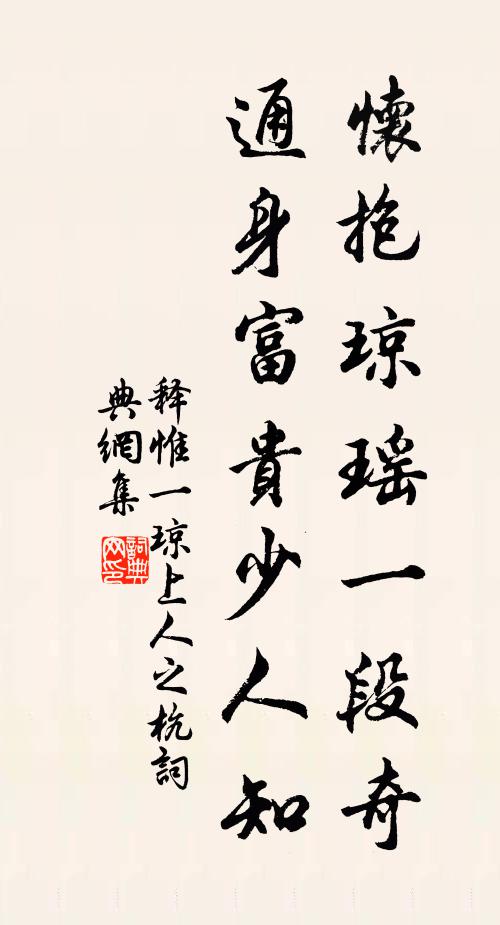 懷抱琼瑶一段奇
通身富貴少人知
释惟一琼上人之杭詞
典網集
詞典
网印